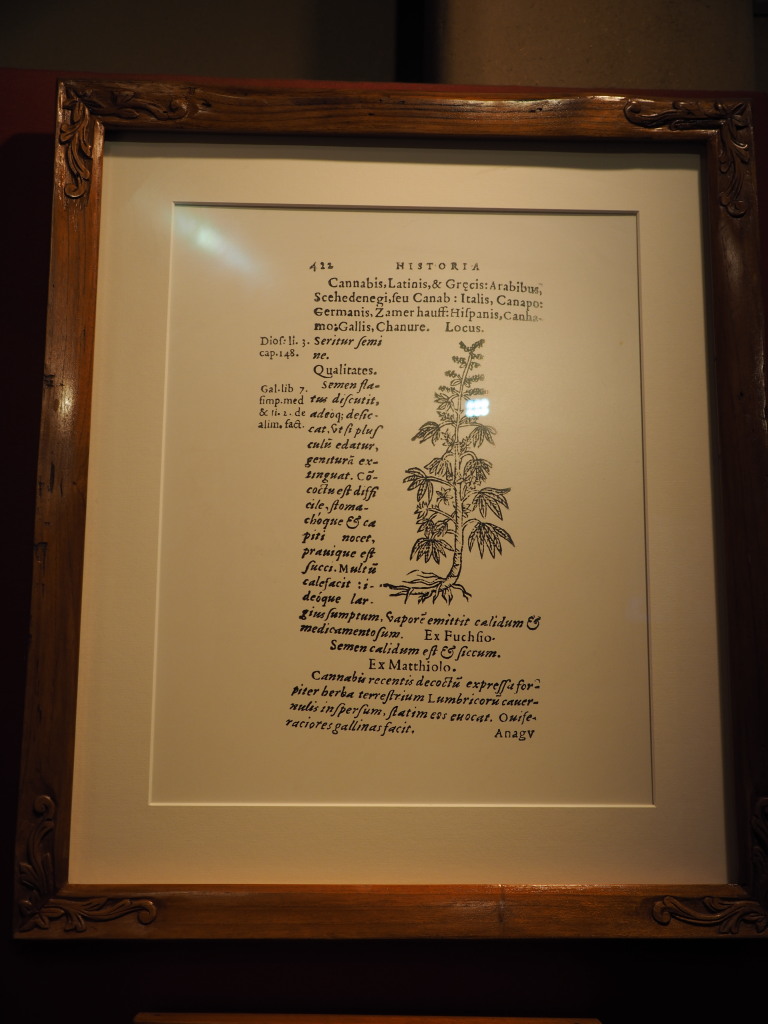 422 HISTORIA
Cannabis, Latinis, & Gręcis: Arabibus,
Scehedenegi, ſeu Canab : Italis, Canapo:
Germanis, Zamer hauff: Hiſpanis, Canha-
mo: Gallis, Chanure. Locus.
Dioſ. li. 3.
cap. 148.
Seritur ſemi
ne.
Qualitates.
Gal. lib 7.
ſimp. med
& li. 2. de
alim. fact.
Semen fla-
tus diſcutit,
adeoq; deſic-
cat, vt ſi pluſ
culũ edatur,
geniturã ex-
tinguat. Cõ-
coctu eſt diffi
cile, ſtoma-
chóque & ca
piti nocet,
prauique eſt
ſucci. Multũ
calefacit : i-
deóque lar-
gius ſumptum, vaporẽ emittit calidum &
medicamentoſum. Ex Fuchſio.
Semen calidum eſt & ſiccum.
Ex Matthiolo.
Cannabis recentis decoctũ expreſſa for-
piter herba terreſtrium Lumbricorũ cauer-
nulis inſperſum, ſtatim eos euocat. Ouife-
raciores gallinas facit.
Anagv